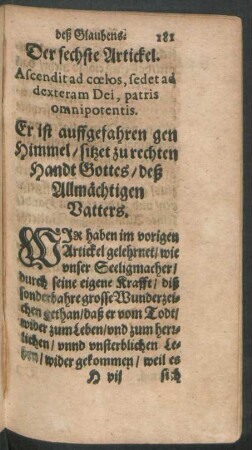 deß Glaubens.
181
Der sechste Artickel.
Ascendit ad cœlos, sedet ad
dexteram Dei, patris
omnipotentis.
Er ist auffgefahren gen
Himmel / sitzet zu rechten
Handt Gottes / deß
Allmächtigen
Vatters.
WIR haben im vorigen
Artickel gelehrnet / wie
vnser Seeligmacher /
durch seine eigene Krafft / diß
sonderbahre grosse Wunderzei-
chen gethan / daß er vom Todt /
wider zum Leben / vnd zum herr-
lichen / vnnd vnsterblichen Le-
ben / wider gekommen / weil es
H vij
sich